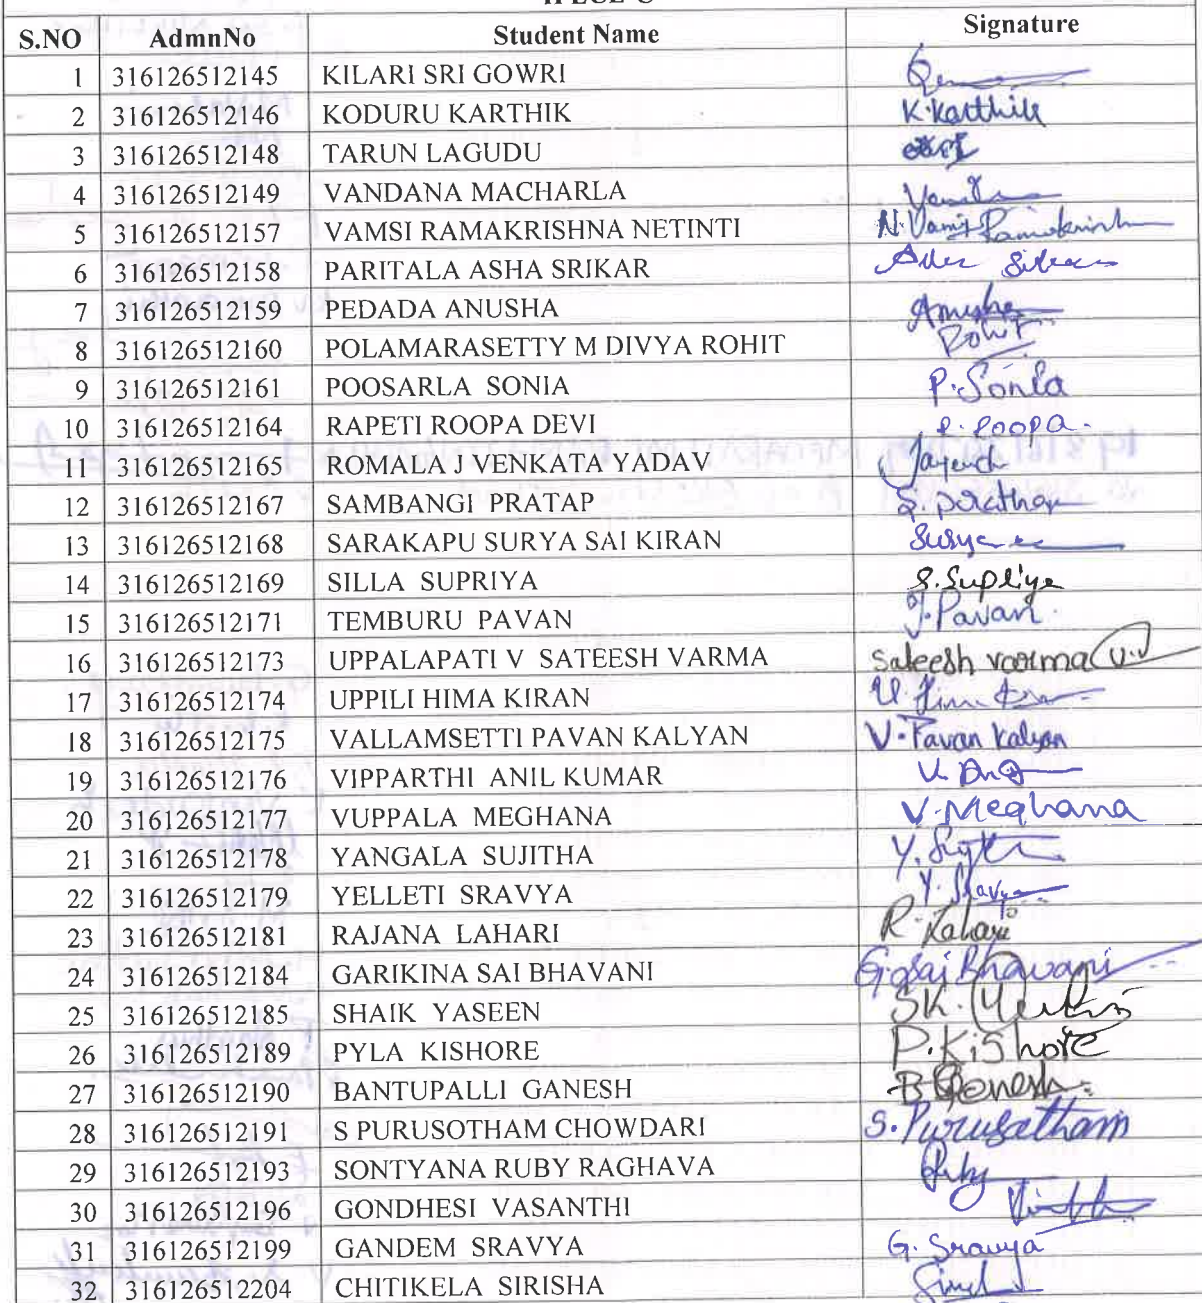 S.NO AdmnNo Student Name Signature
1 316126512145 KILARI SRI GOWRI
2 316126512146 KODURU KARTHIK K.Karthik
3 316126512148 TARUN LAGUDU
4 316126512149 VANDANA MACHARLA
5 316126512157 VAMSI RAMAKRISHNA NETINTI N.Vamsi Ramakrishna
6 316126512158 PARITALA ASHA SRIKAR
7 316126512159 PEDADA ANUSHA Anusha
8 316126512160 POLAMARASETTY M DIVYA ROHIT Rohit
9 316126512161 POOSARLA SONIA P.Sonia
10 316126512164 RAPETI ROOPA DEVI R.Roopa.
11 316126512165 ROMALA J VENKATA YADAV
12 316126512167 SAMBANGI PRATAP S.
13 316126512168 SARAKAPU SURYA SAI KIRAN Surya
14 316126512169 SILLA SUPRIYA S.Supriya
15 316126512171 TEMBURU PAVAN T.Pavan.
16 316126512173 UPPALAPATI V SATEESH VARMA Sateesh varma U.V
17 316126512174 UPPILI HIMA KIRAN U.
18 316126512175 VALLAMSETTI PAVAN KALYAN V.Pavan Kalyan
19 316126512176 VIPPARTHI ANIL KUMAR V.
20 316126512177 VUPPALA MEGHANA V.Meghana
21 316126512178 YANGALA SUJITHA Y.
22 316126512179 YELLETI SRAVYA Y.Sravya
23 316126512181 RAJANA LAHARI R.Lahari
24 316126512184 GARIKINA SAI BHAVANI G.Sai Bhavani
25 316126512185 SHAIK YASEEN SK.
26 316126512189 PYLA KISHORE P.Kishore
27 316126512190 BANTUPALLI GANESH B.Ganesh
28 316126512191 S PURUSOTHAM CHOWDARI S.Purusotham
29 316126512193 SONTYANA RUBY RAGHAVA Ruby
30 316126512196 GONDHESI VASANTHI
31 316126512199 GANDEM SRAVYA G. Sravya
32 316126512204 CHITIKELA SIRISHA